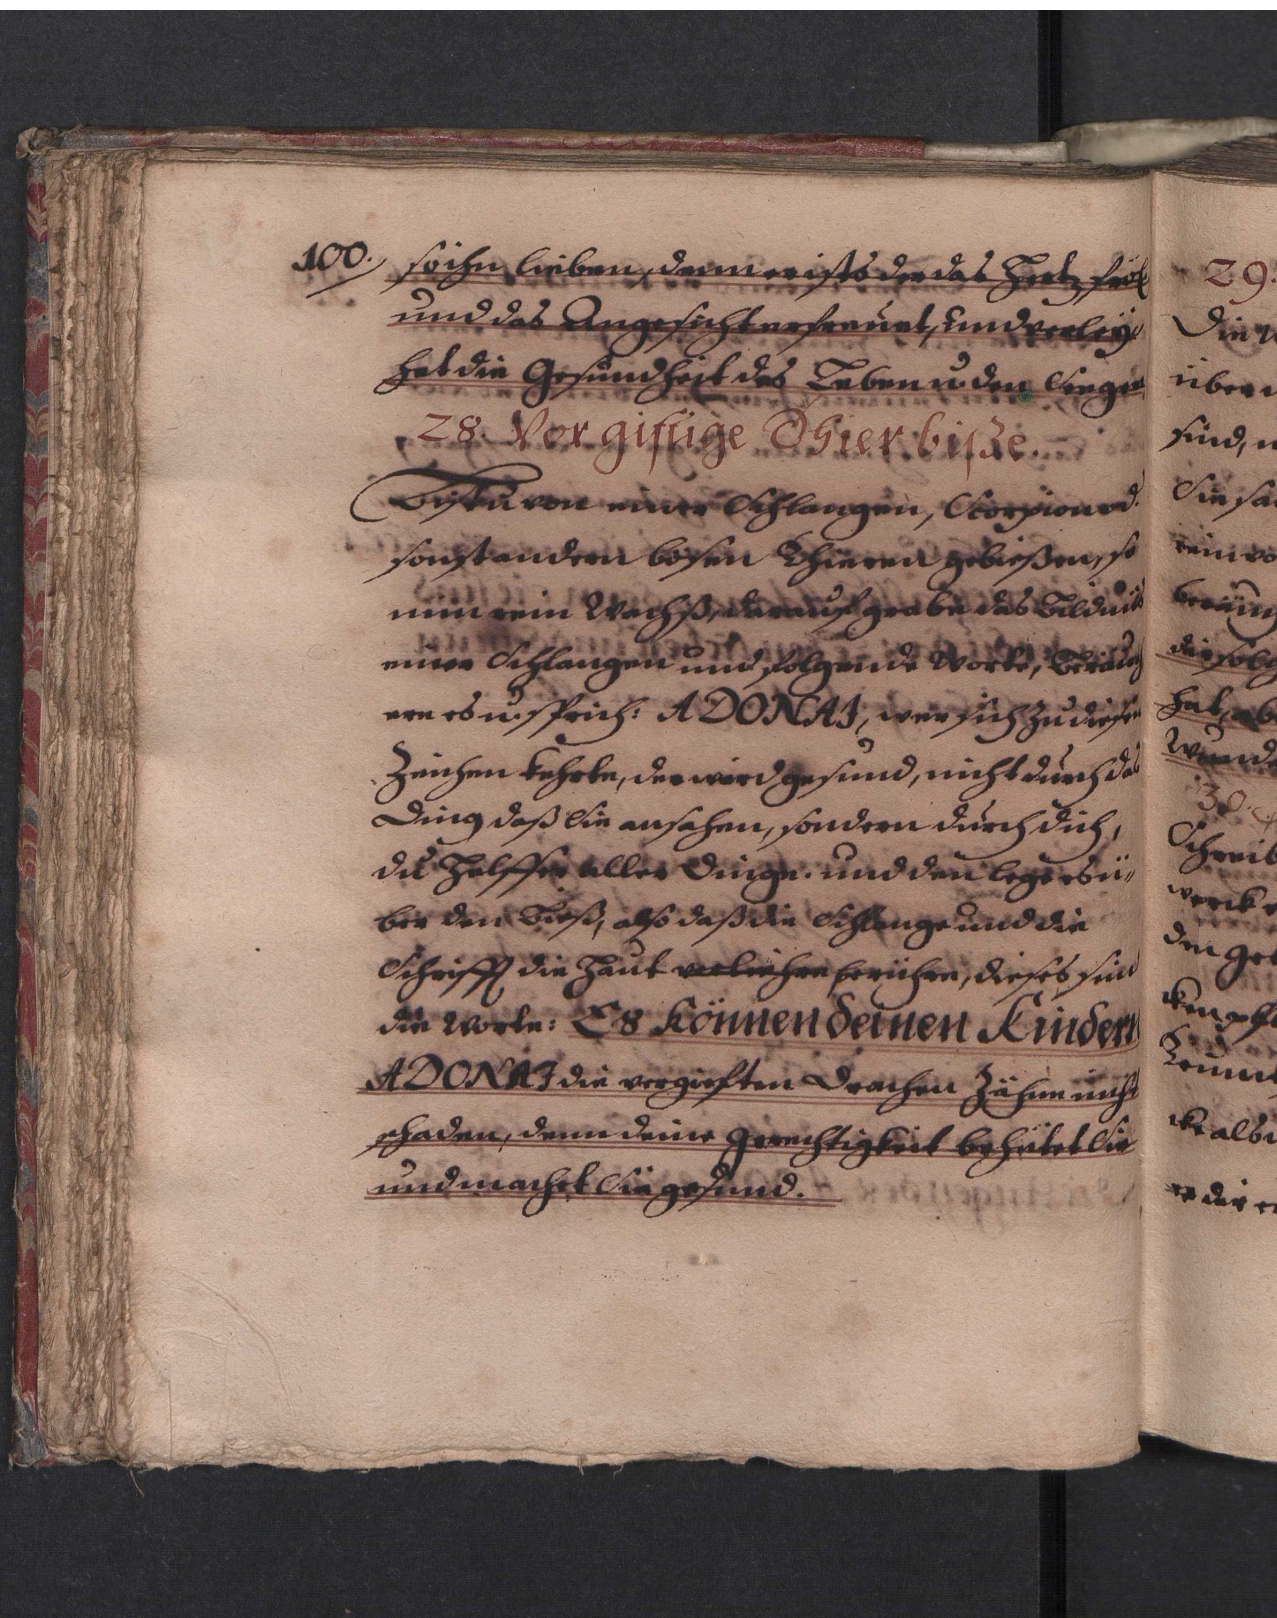 100. so ihn lieben, dann er ists der das Hertz fröl
und das Angesicht erfreuet, und verley
het die Gesundheit des Leben u. den Seegen
28 Vor gifftige Thier biße.
Bistu von einer Schlangen, Scorpion od.
sonst andern bösen Thieren gebießen, so
nim rein Wachß, darauf grabe das Bildnüs
einer Schlangen und folgende Worte, Beräuch
ere es u. sprich: ADONAI, wer sich zu diesen
Zeichen kehrte, der wird gesund, nicht durch das
Ding daß Sie ansahen, sondern durch dich,
du Helffer aller Dinge. und den lege es ü„
ber den Bieß, also daß die Schlange und die
Schrifft die Haut berühre, dieses sind
die Worte: Es können deinen Kindern
ADONAI die vergieften Drachen Zähne nicht
schaden, denn deine Gerechtigkeit behütet Sie
und machet Sie gesund.
29.
Die
über
sind,
Sie
rein
die folg
hat,
30.
Schreib
werck
den